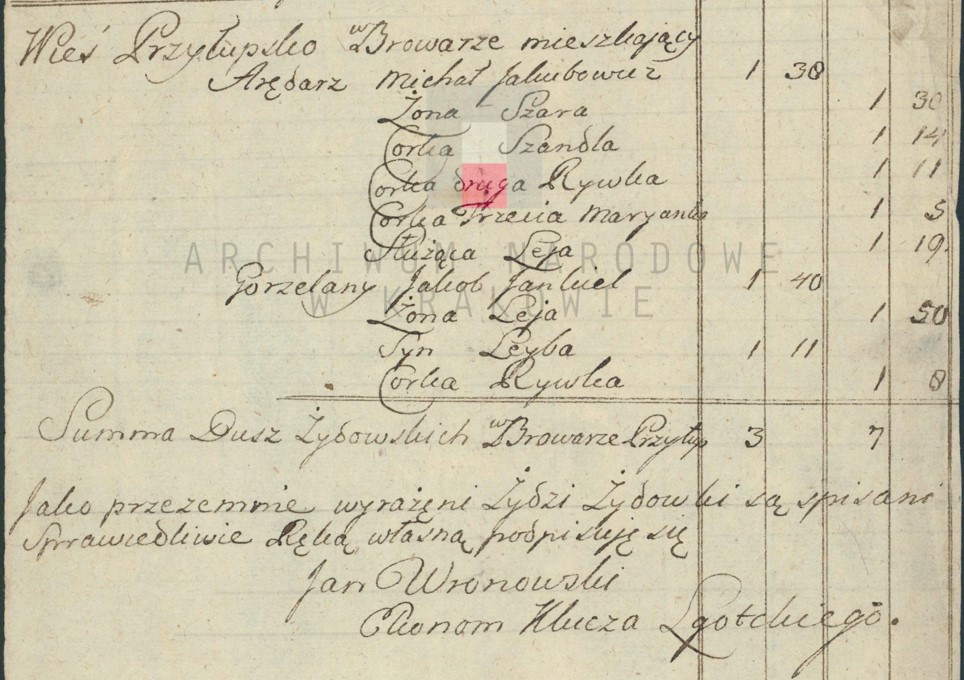 Wieś Przytupsko w Browarze mieszkający
Arędarz Michał Jakubowicz 1 38
Żona Szara 1 30
Corka Szandla 1 14
Corka druga Rywka 1 11
Corka Trzecia Maryanka 1 5
Służąca Leja 1 19.
Gorzelany Jakob Jankiel 1 40
Żona Leja 1 50
Syn Leyba 1 11
Corka Rywka 1 8
Summa Dusz Żydowskich w Browarze Przytup 3 7
Jako przezemnie wyrażęni Żydzi Żydowki są spisani
Sprawiedliwie Ręką własną podpisuję się
Jan Wronowski
Ekonom Klucza Lgotckiego.
ARCHIWUM NARODOWE
W KRAKOWIE